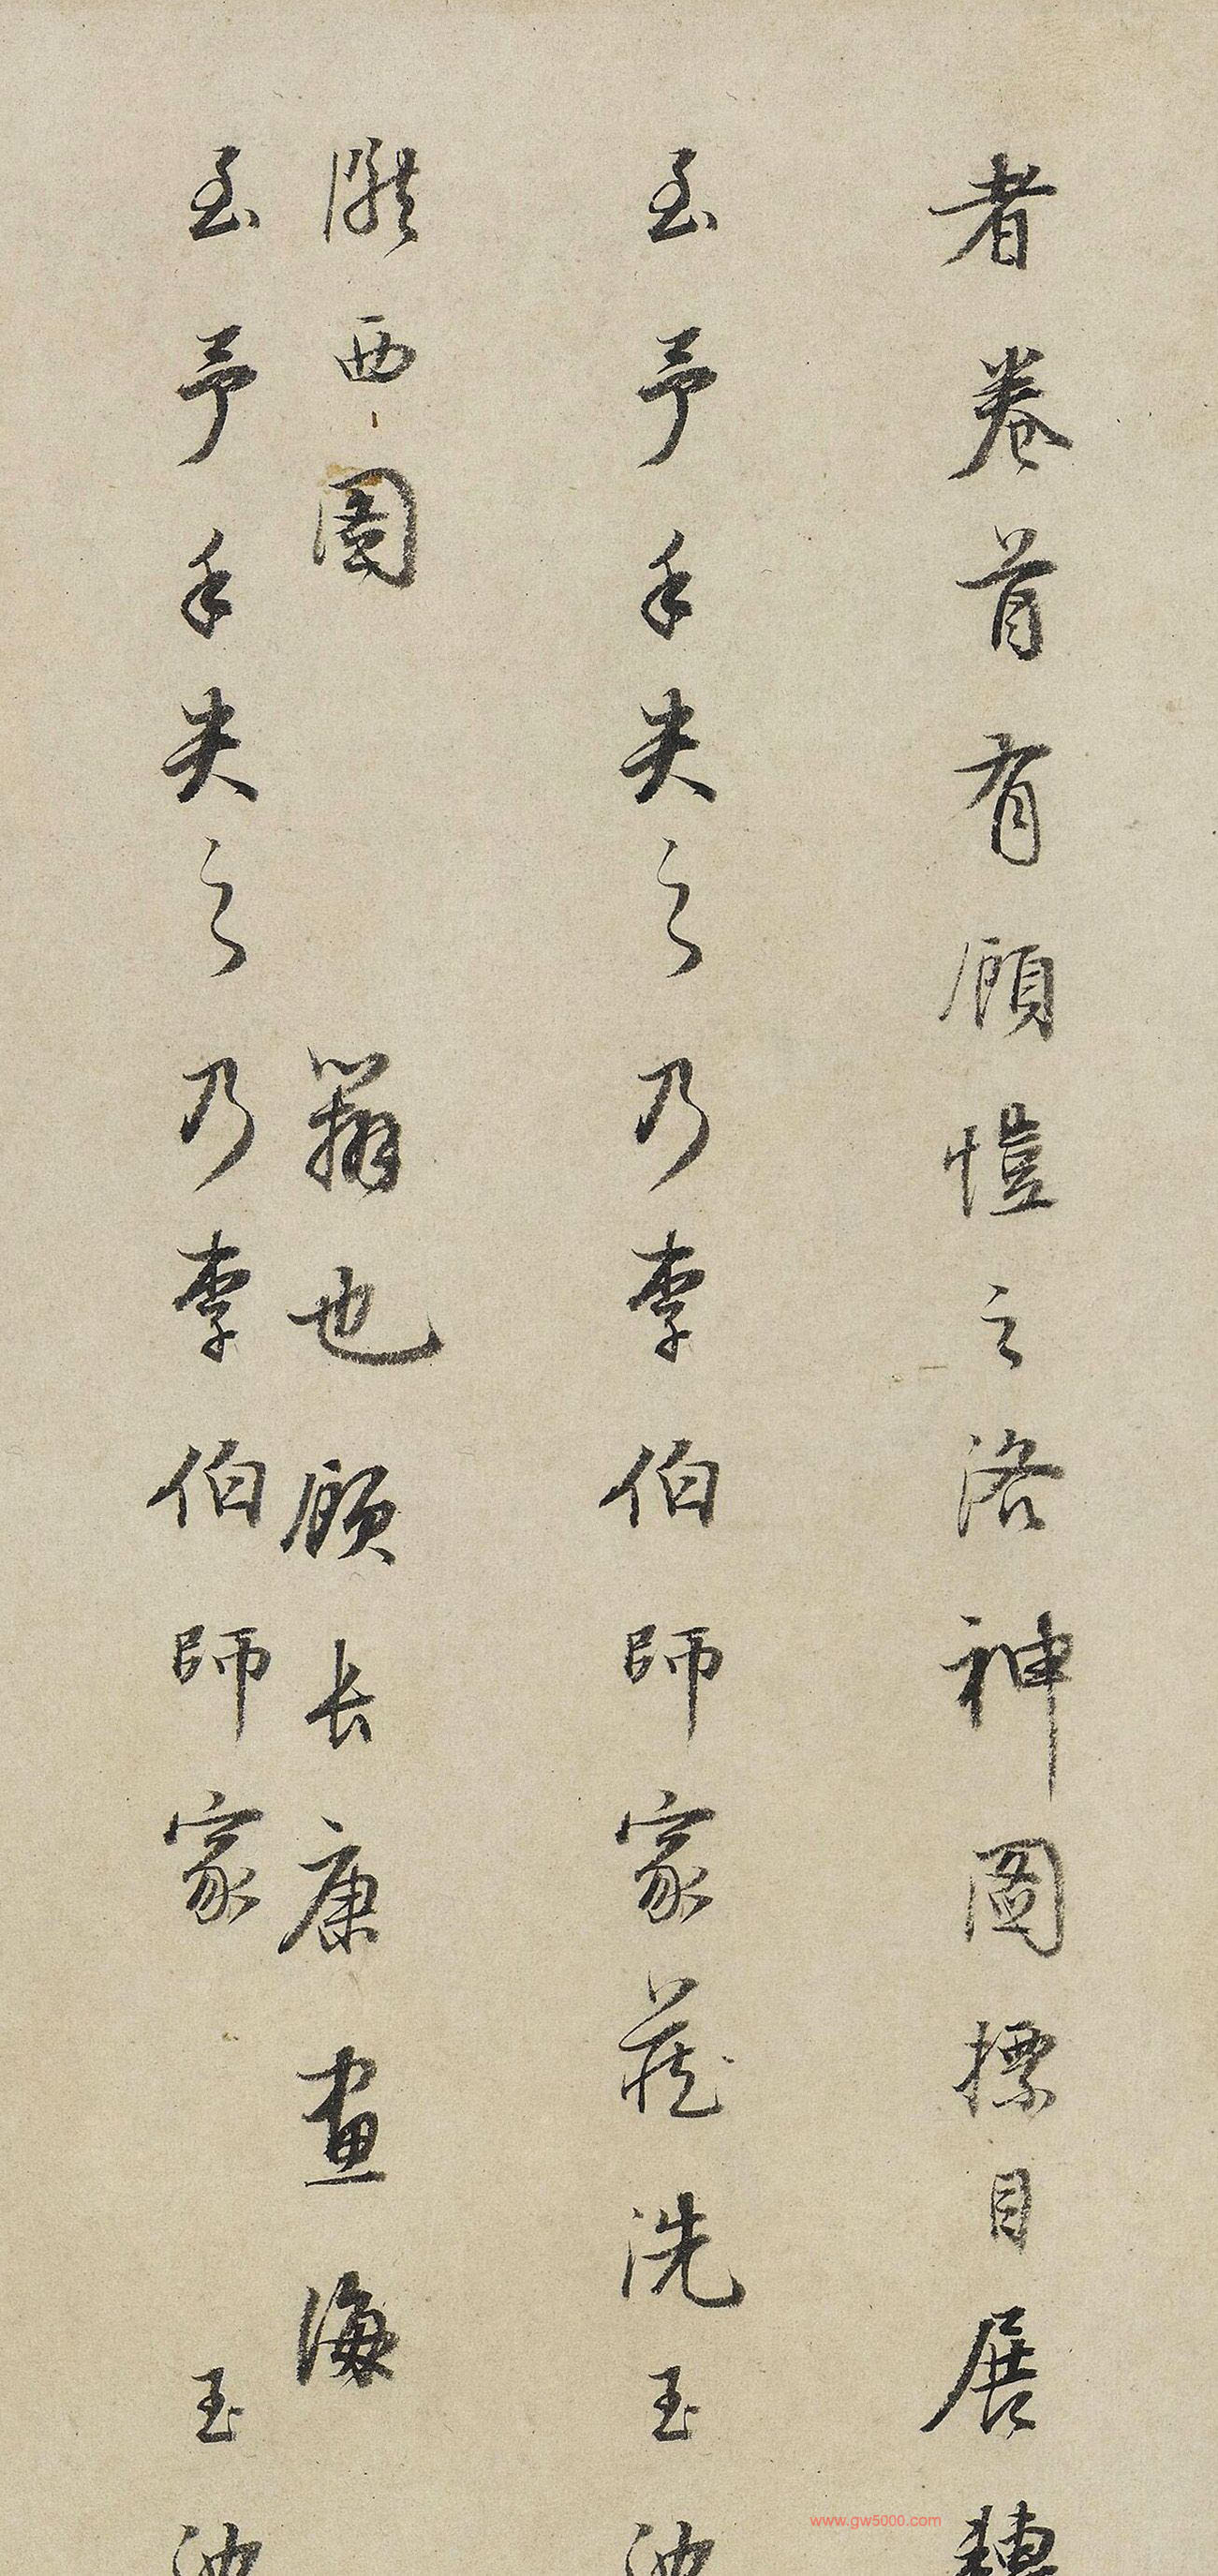 者卷首有顧愷之洛神圖標目展轉
至予手失之乃李伯師家藏洗玉池
隴西圖 辯也顧長康畫海
至予手失之乃李伯師家 玉池
www.gw5000.com